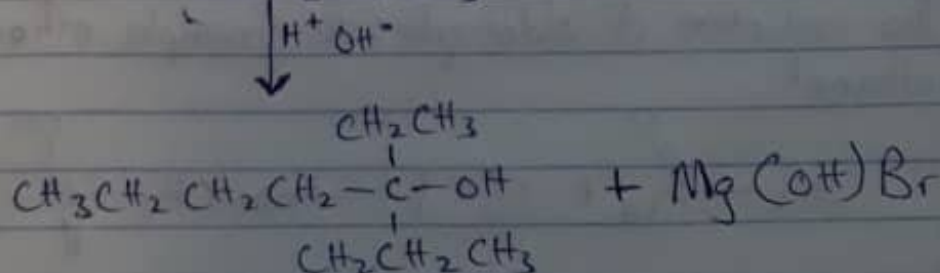 H⁺ OH⁻
CH₂CH₃
CH₃CH₂CH₂CH₂—C—OH + Mg(OH)Br
CH₂CH₂CH₃